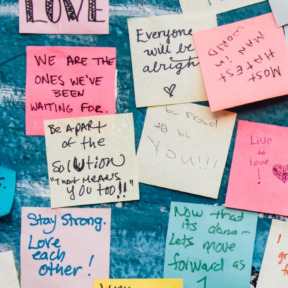 LOVE
Everyone
will be
alright
MOST
HATEST
MAN in
WORLD
WE ARE THE
ONES WE'VE
BEEN
WAITING FOR.
BE APART
of the
SOLUTION
"THAT MEANS
YOU TOO!!"
be proud
to be
You!!!
Live
to
love
!
Stay Strong.
Love
each
other!
Now that
its done-
Lets move
forward as
1